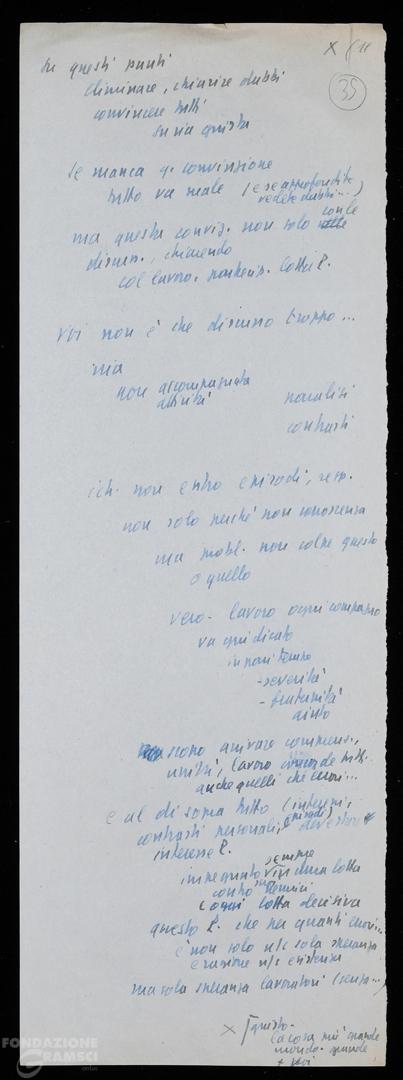 su questi punti
eliminare, chiarire dubbi
convincere tutti
su via giusta
35
se manca q. convinzione
tutto va male (e se approfondite
vedete dubbi...)
ma questa convinz. non solo con le
discuss., chiarendo
col lavoro. partecip. lotta P.
voi non è che discusso troppo...
ma
non accompagnata
attività
paralisi
contrasti
non entro episodi, resp.
non solo perché non conoscenza
ma probl. non colpe questo
o quello
vero - lavoro ogni compagno
va giudicato
in pari tempo
- severità
- fraternità
aiuto
scopo arrivare
unità, lavoro concorde tutti
anche quelli che errori...
e al di sopra tutto (interessi,
contrasti personali, episodi) deve esserci
interesse P.
impegnato sempre in una lotta
contro nemici
(oggi lotta decisiva
questo P. che per quanti errori...
è non solo n/s sola speranza
e ragione n/s esistenza
ma sola speranza lavoratori (senza...)
x questo -
la cosa più grande
mondo - grande
+ poi
FONDAZIONE
GRAMSCI
onlus